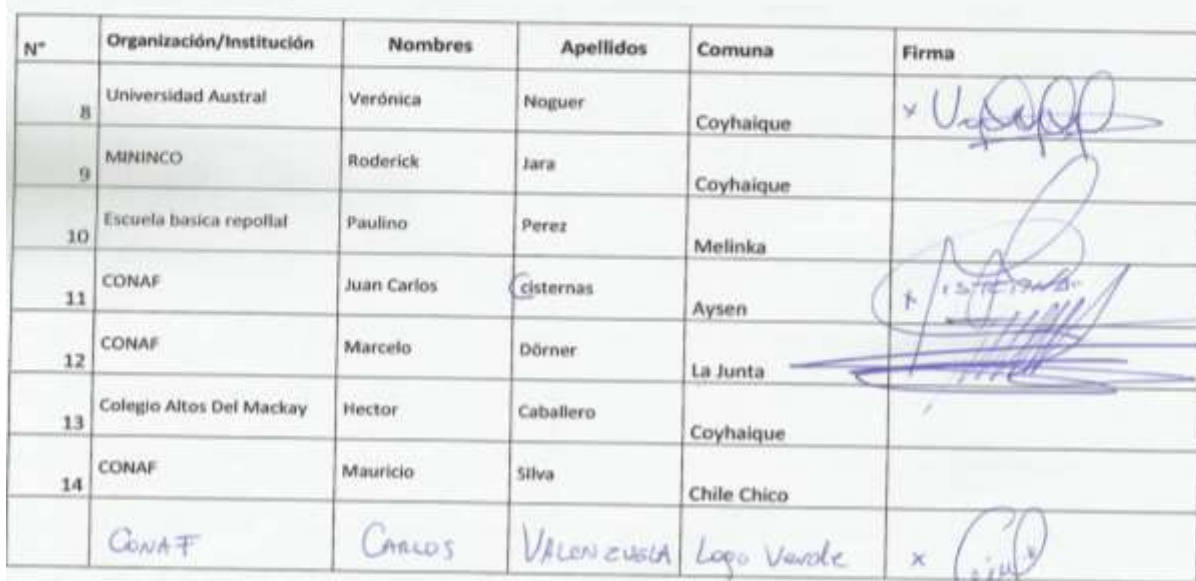 N° Organización/Institución Nombres Apellidos Comuna Firma
8 Universidad Austral Verónica Noguer Coyhaique x
9 MININCO Roderick Jara Coyhaique
10 Escuela basica repollal Paulino Perez Melinka
11 CONAF Juan Carlos cisternas Aysen x
12 CONAF Marcelo Dörner La Junta
13 Colegio Altos Del Mackay Hector Caballero Coyhaique
14 CONAF Mauricio Silva Chile Chico
CONAF CARLOS VALENZUELA Lago Verde x